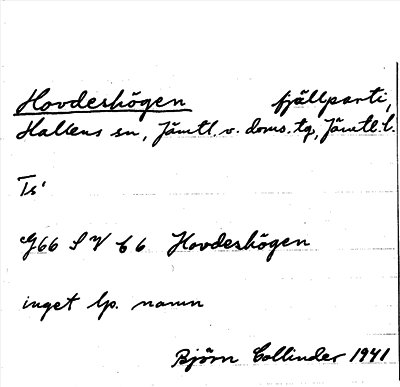 Hovdeshögen fjällparti,
Hallens sn, Jämtl. v. doms. tg, Jämtl. l.
Ts'
G66 S V b 6 Hovdeshögen
inget lp. namn
Björn Collinder 1941